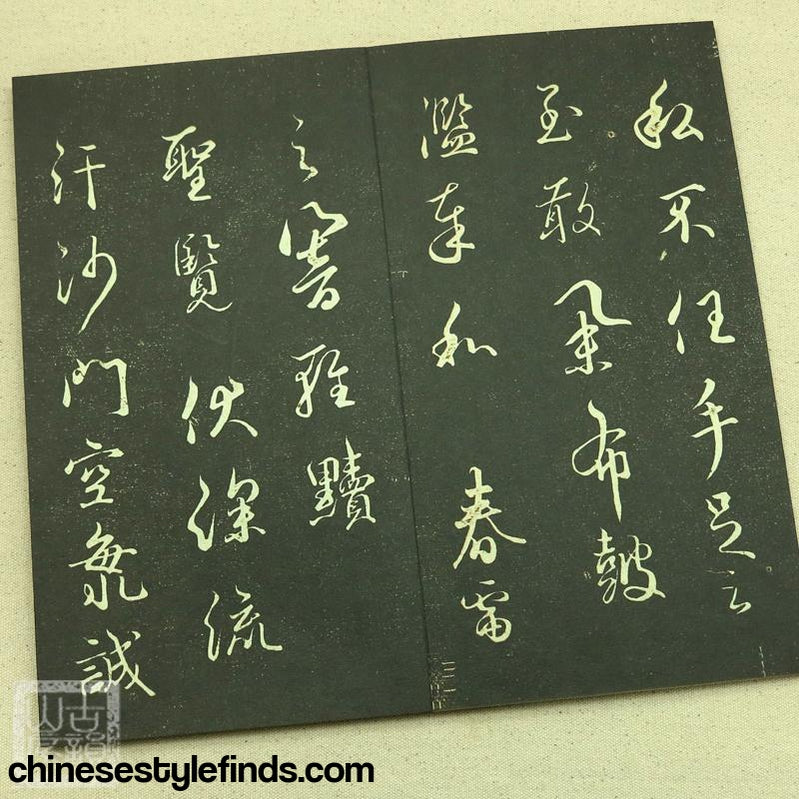 私不任手足之
至敢布鼓
濫奉和 春雷
之響輕黷
聖覽伏深流
汗沙門空海誠
chinesestylefinds.com